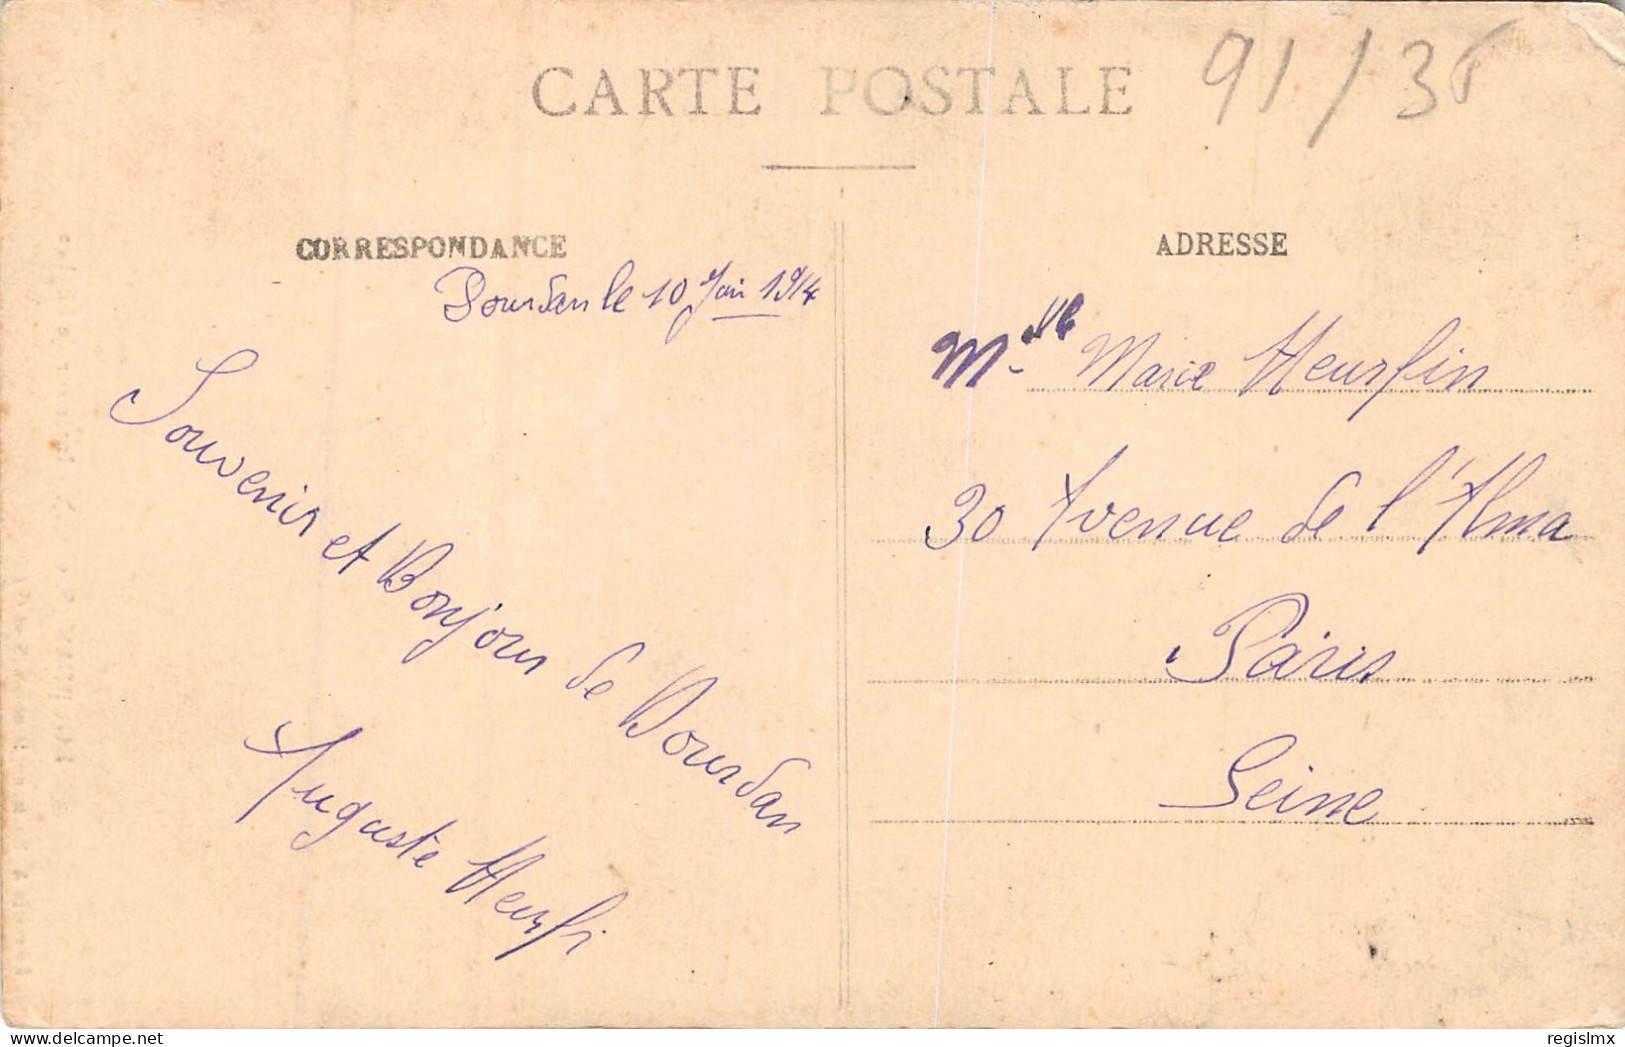 CARTE POSTALE
91/35
CORRESPONDANCE
Dourdan le 10 Juin 1914
Souvenir et Bonjour de Dourdan
Auguste Heurfi
ADRESSE
Mlle Marie Heurfin
30 Avenue de l'Alma
Paris
Seine
delcampe.net
regislmx